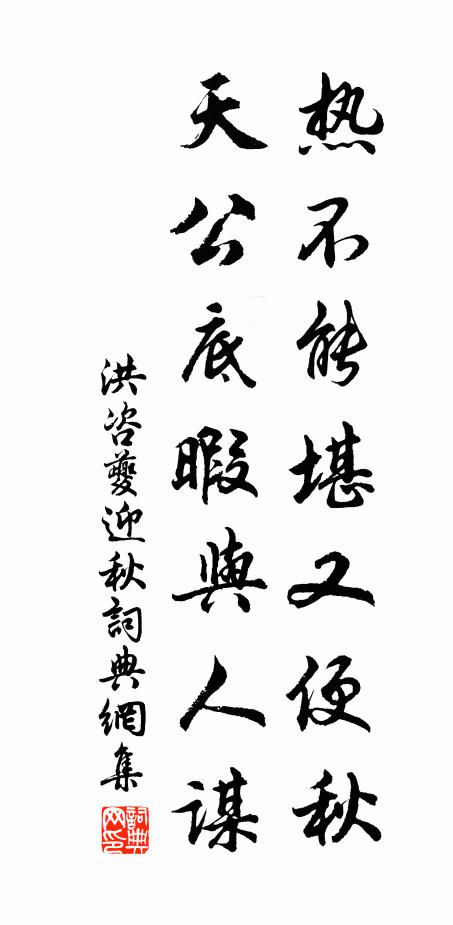 热不能堪又便秋
天公底暇與人谋
洪咨夔迎秋詞典網集
詞典网印